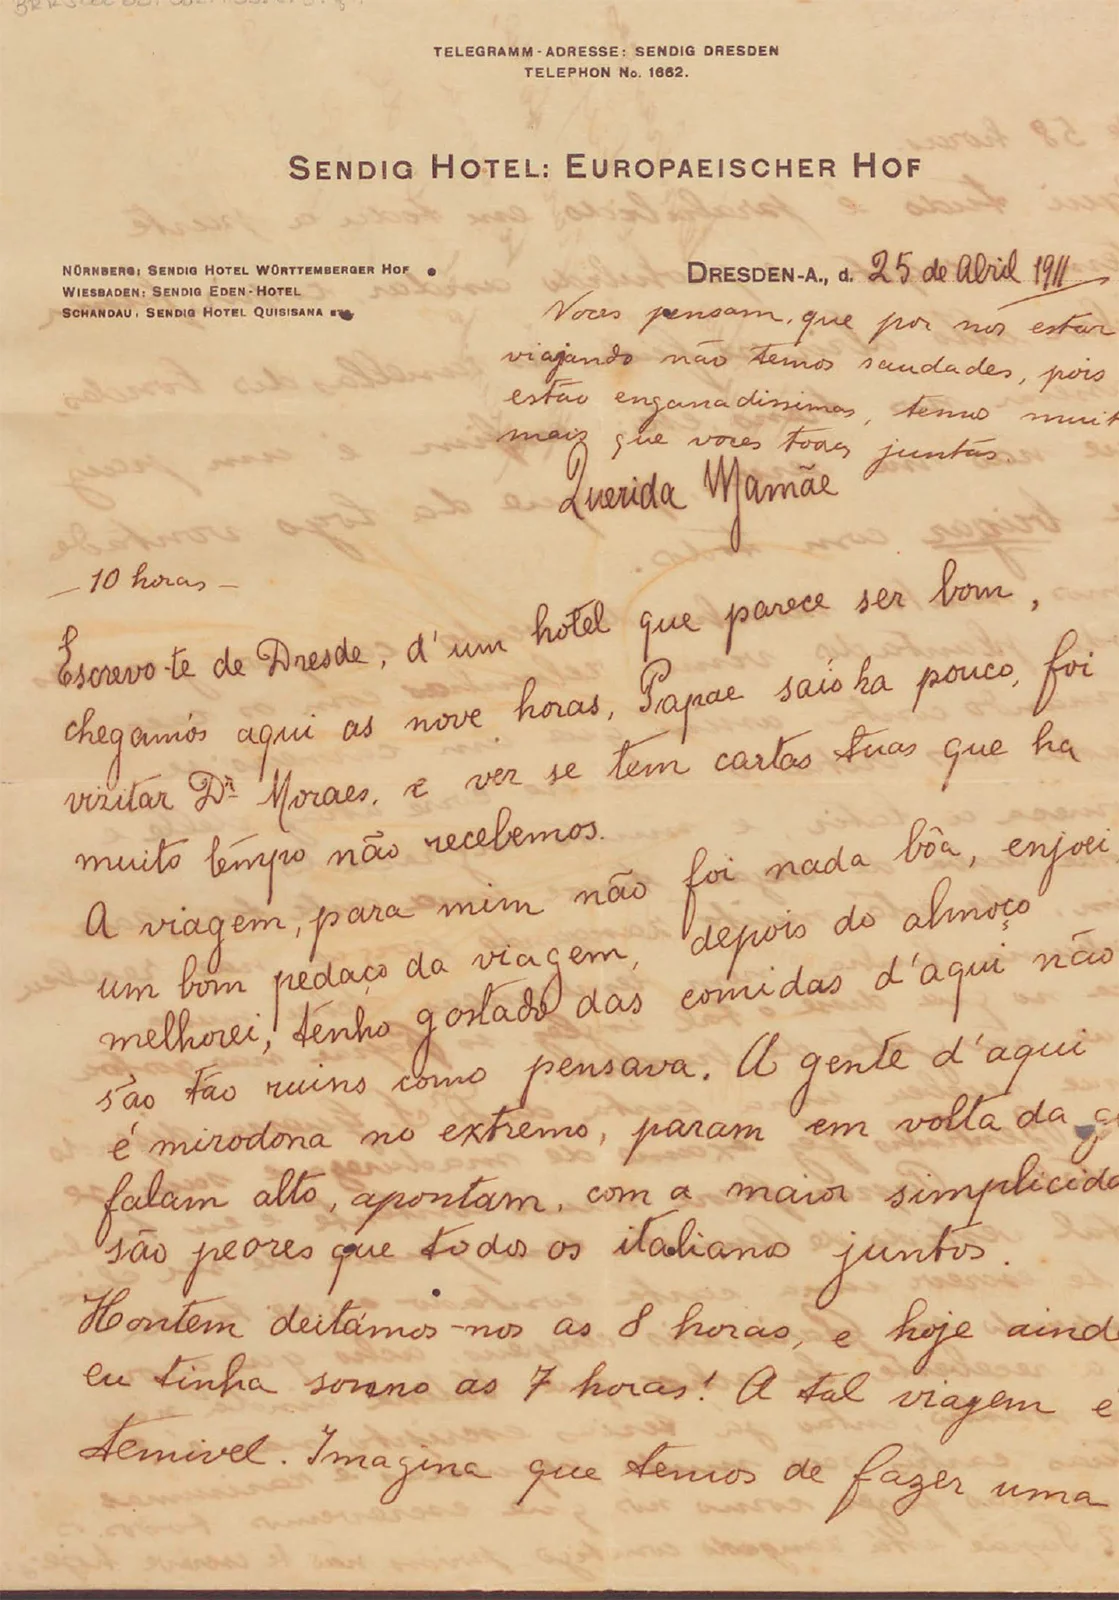 TELEGRAMM-ADRESSE: SENDIG DRESDEN
TELEPHON No. 1662.
SENDIG HOTEL: EUROPAEISCHER HOF
NÜRNBERG: SENDIG HOTEL WÜRTTEMBERGER HOF
WIESBADEN: SENDIG EDEN-HOTEL
SCHANDAU: SENDIG HOTEL QUISISANA etc.
DRESDEN-A., d. 25 de Abril 1911
Voces pensam, que por nós estar
viajando não temos saudades, pois
estão enganadissimas, temos muit
mais que voces todas juntas.
Querida Mamãe
– 10 horas –
Escrevo-te de Dresde, d'um hotel que parece ser bom,
chegamós aqui as nove horas, Papae saío ha pouco, foi
vizitar Dr. Moraes, e ver se tem cartas tuas que ha
muito tempo não recebemos.
A viagem, para mim não foi nada bôa, enjoei
um bom pedaço da viagem, depois do almoço
melhorei, tenho gostado das comidas d'aqui não
são tão ruins como pensava. A gente d'aqui
é mirodona no extremo, param em volta da ge
falam alto, apontam, com a maior simplicida
são peores que todos os italianos juntos.
Hontem deitámos-nos as 8 horas, e hoje aind
eu tinha somno as 7 horas! A tal viagem e
temivel. Imagina que temos de fazer uma